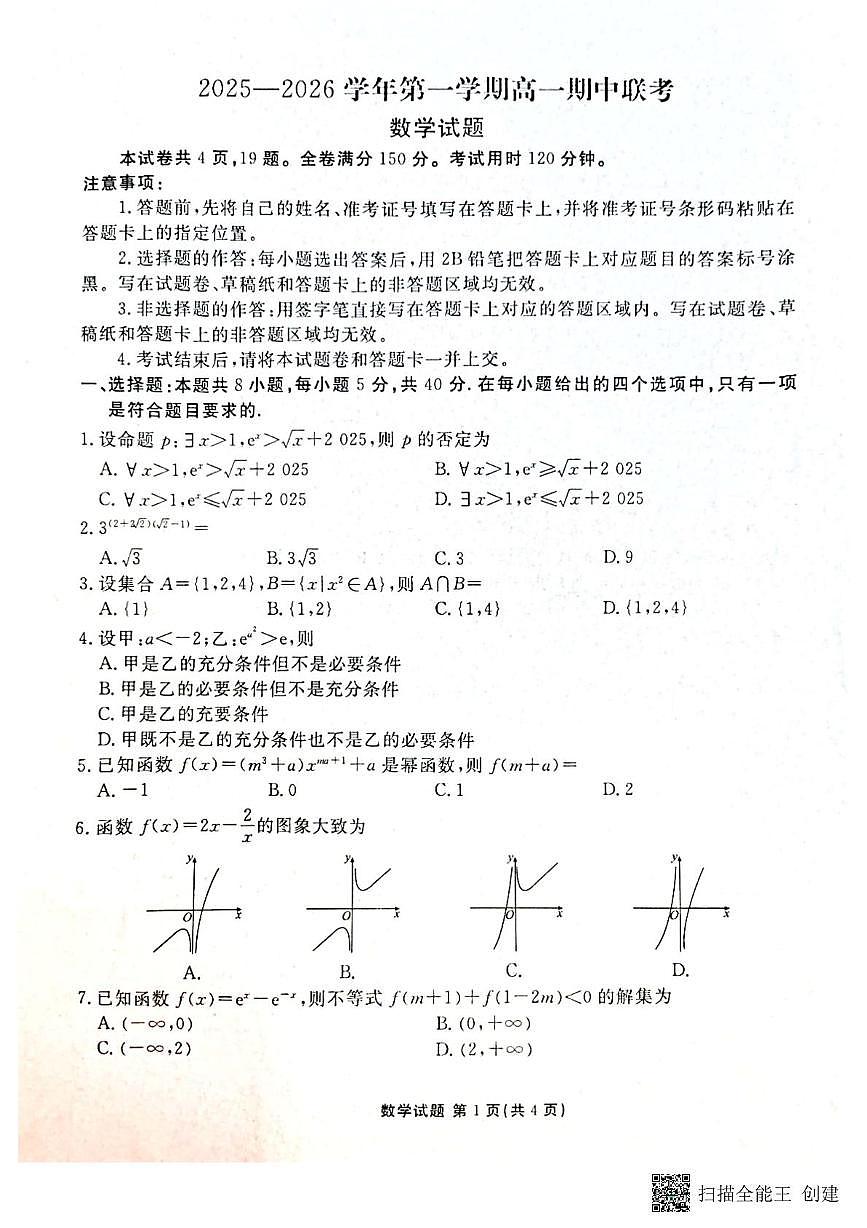 2025—2026 学年第一学期高一期中联考
数学试题
本试卷共 4 页,19 题。全卷满分 150 分。考试用时 120 分钟。
注意事项:
1. 答题前,先将自己的姓名、准考证号填写在答题卡上,并将准考证号条形码粘贴在
答题卡上的指定位置。
2. 选择题的作答:每小题选出答案后,用 2B 铅笔把答题卡上对应题目的答案标号涂
黑。写在试题卷、草稿纸和答题卡上的非答题区域均无效。
3. 非选择题的作答:用签字笔直接写在答题卡上对应的答题区域内。写在试题卷、草
稿纸和答题卡上的非答题区域均无效。
4. 考试结束后,请将本试题卷和答题卡一并上交。
一、选择题:本题共 8 小题,每小题 5 分,共 40 分. 在每小题给出的四个选项中,只有一项
是符合题目要求的.
1. 设命题 p:∃x>1,eˣ>√x+2 025,则 p 的否定为
A. ∀x>1,eˣ>√x+2 025 B. ∀x>1,eˣ≥√x+2 025
C. ∀x>1,eˣ≤√x+2 025 D. ∃x>1,eˣ≤√x+2 025
2. 3^((2+2√2)(√2-1))=
A. √3 B. 3√3 C. 3 D. 9
3. 设集合 A={1,2,4},B={x|x²∈A},则 A∩B=
A. {1} B. {1,2} C. {1,4} D. {1,2,4}
4. 设甲:a<-2;乙:e^(a²)>e,则
A. 甲是乙的充分条件但不是必要条件
B. 甲是乙的必要条件但不是充分条件
C. 甲是乙的充要条件
D. 甲既不是乙的充分条件也不是乙的必要条件
5. 已知函数 f(x)=(m³+a)x^(ma+1)+a 是幂函数,则 f(m+a)=
A. -1 B. 0 C. 1 D. 2
6. 函数 f(x)=2x-2/x的图象大致为
y y y y
O x O x O x O x
A. B. C. D.
7. 已知函数 f(x)=eˣ-e⁻ˣ,则不等式 f(m+1)+f(1-2m)<0 的解集为
A. (-∞,0) B. (0,+∞)
C. (-∞,2) D. (2,+∞)
数学试题 第 1 页(共 4 页)
扫描全能王 创建